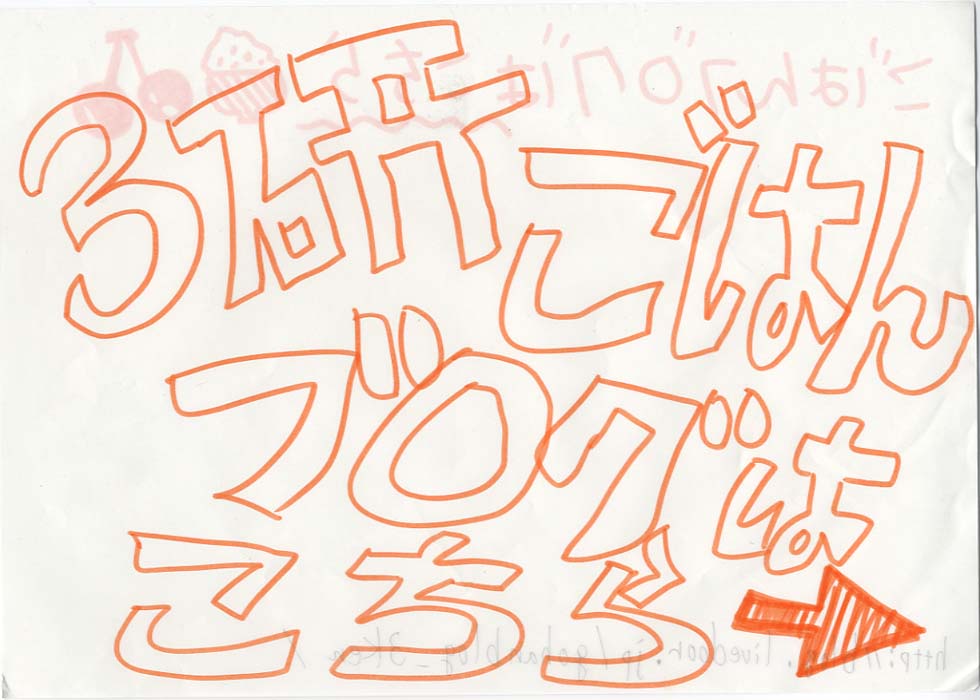 3研ごはん
ブログは
こちら
ごはんブログはこちら
http://blog.livedoor.jp/gohanblog_3Ken/